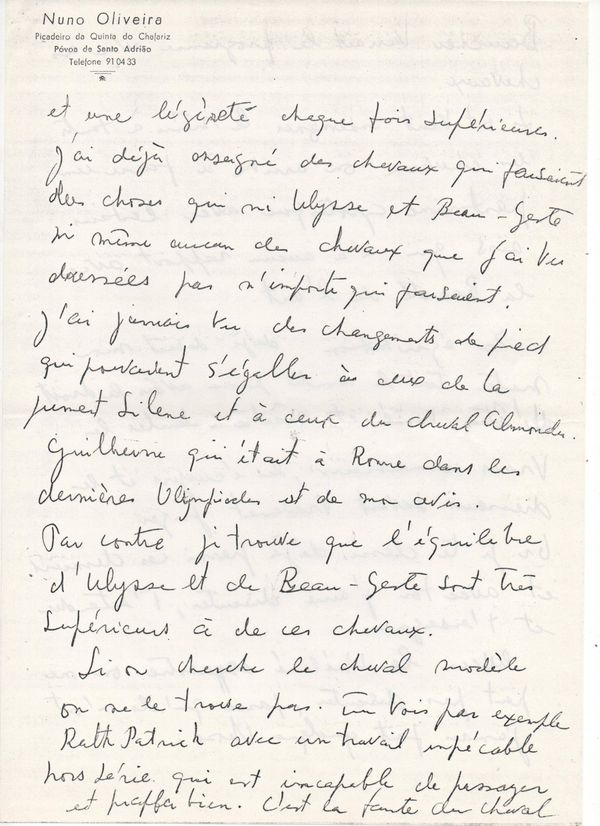 Nuno Oliveira
Picadeiro da Quinta do Chafariz
Póvoa de Santo Adrião
Telefone 91 04 33
et une légèreté chaque fois supérieures.
J'ai déjà enseigné des chevaux qui faisaient
des choses qui ni Ulysse et Beau-Geste
ni même aucun des chevaux que j'ai vu
dressées pas n'importe qui faisaient.
J'ai jamais vu des changements de pied
qui pouvaient s'égaller à ceux de la
jument Silene et à ceux du cheval
Guilherme qui était à Rome dans les
dernières Olimpiades est de mon avis
Par contre je trouve que l'équilibre
d'Ulysse et de Beau-Geste sont très
supérieurs à de ces chevaux.
Si on cherche le cheval modèle
on ne le trouve pas. Tu vois par exemple
Rath Patrick avec un travail impecable
hors série qui est incapable de passager
et piaffer bien. C'est la faute du cheval